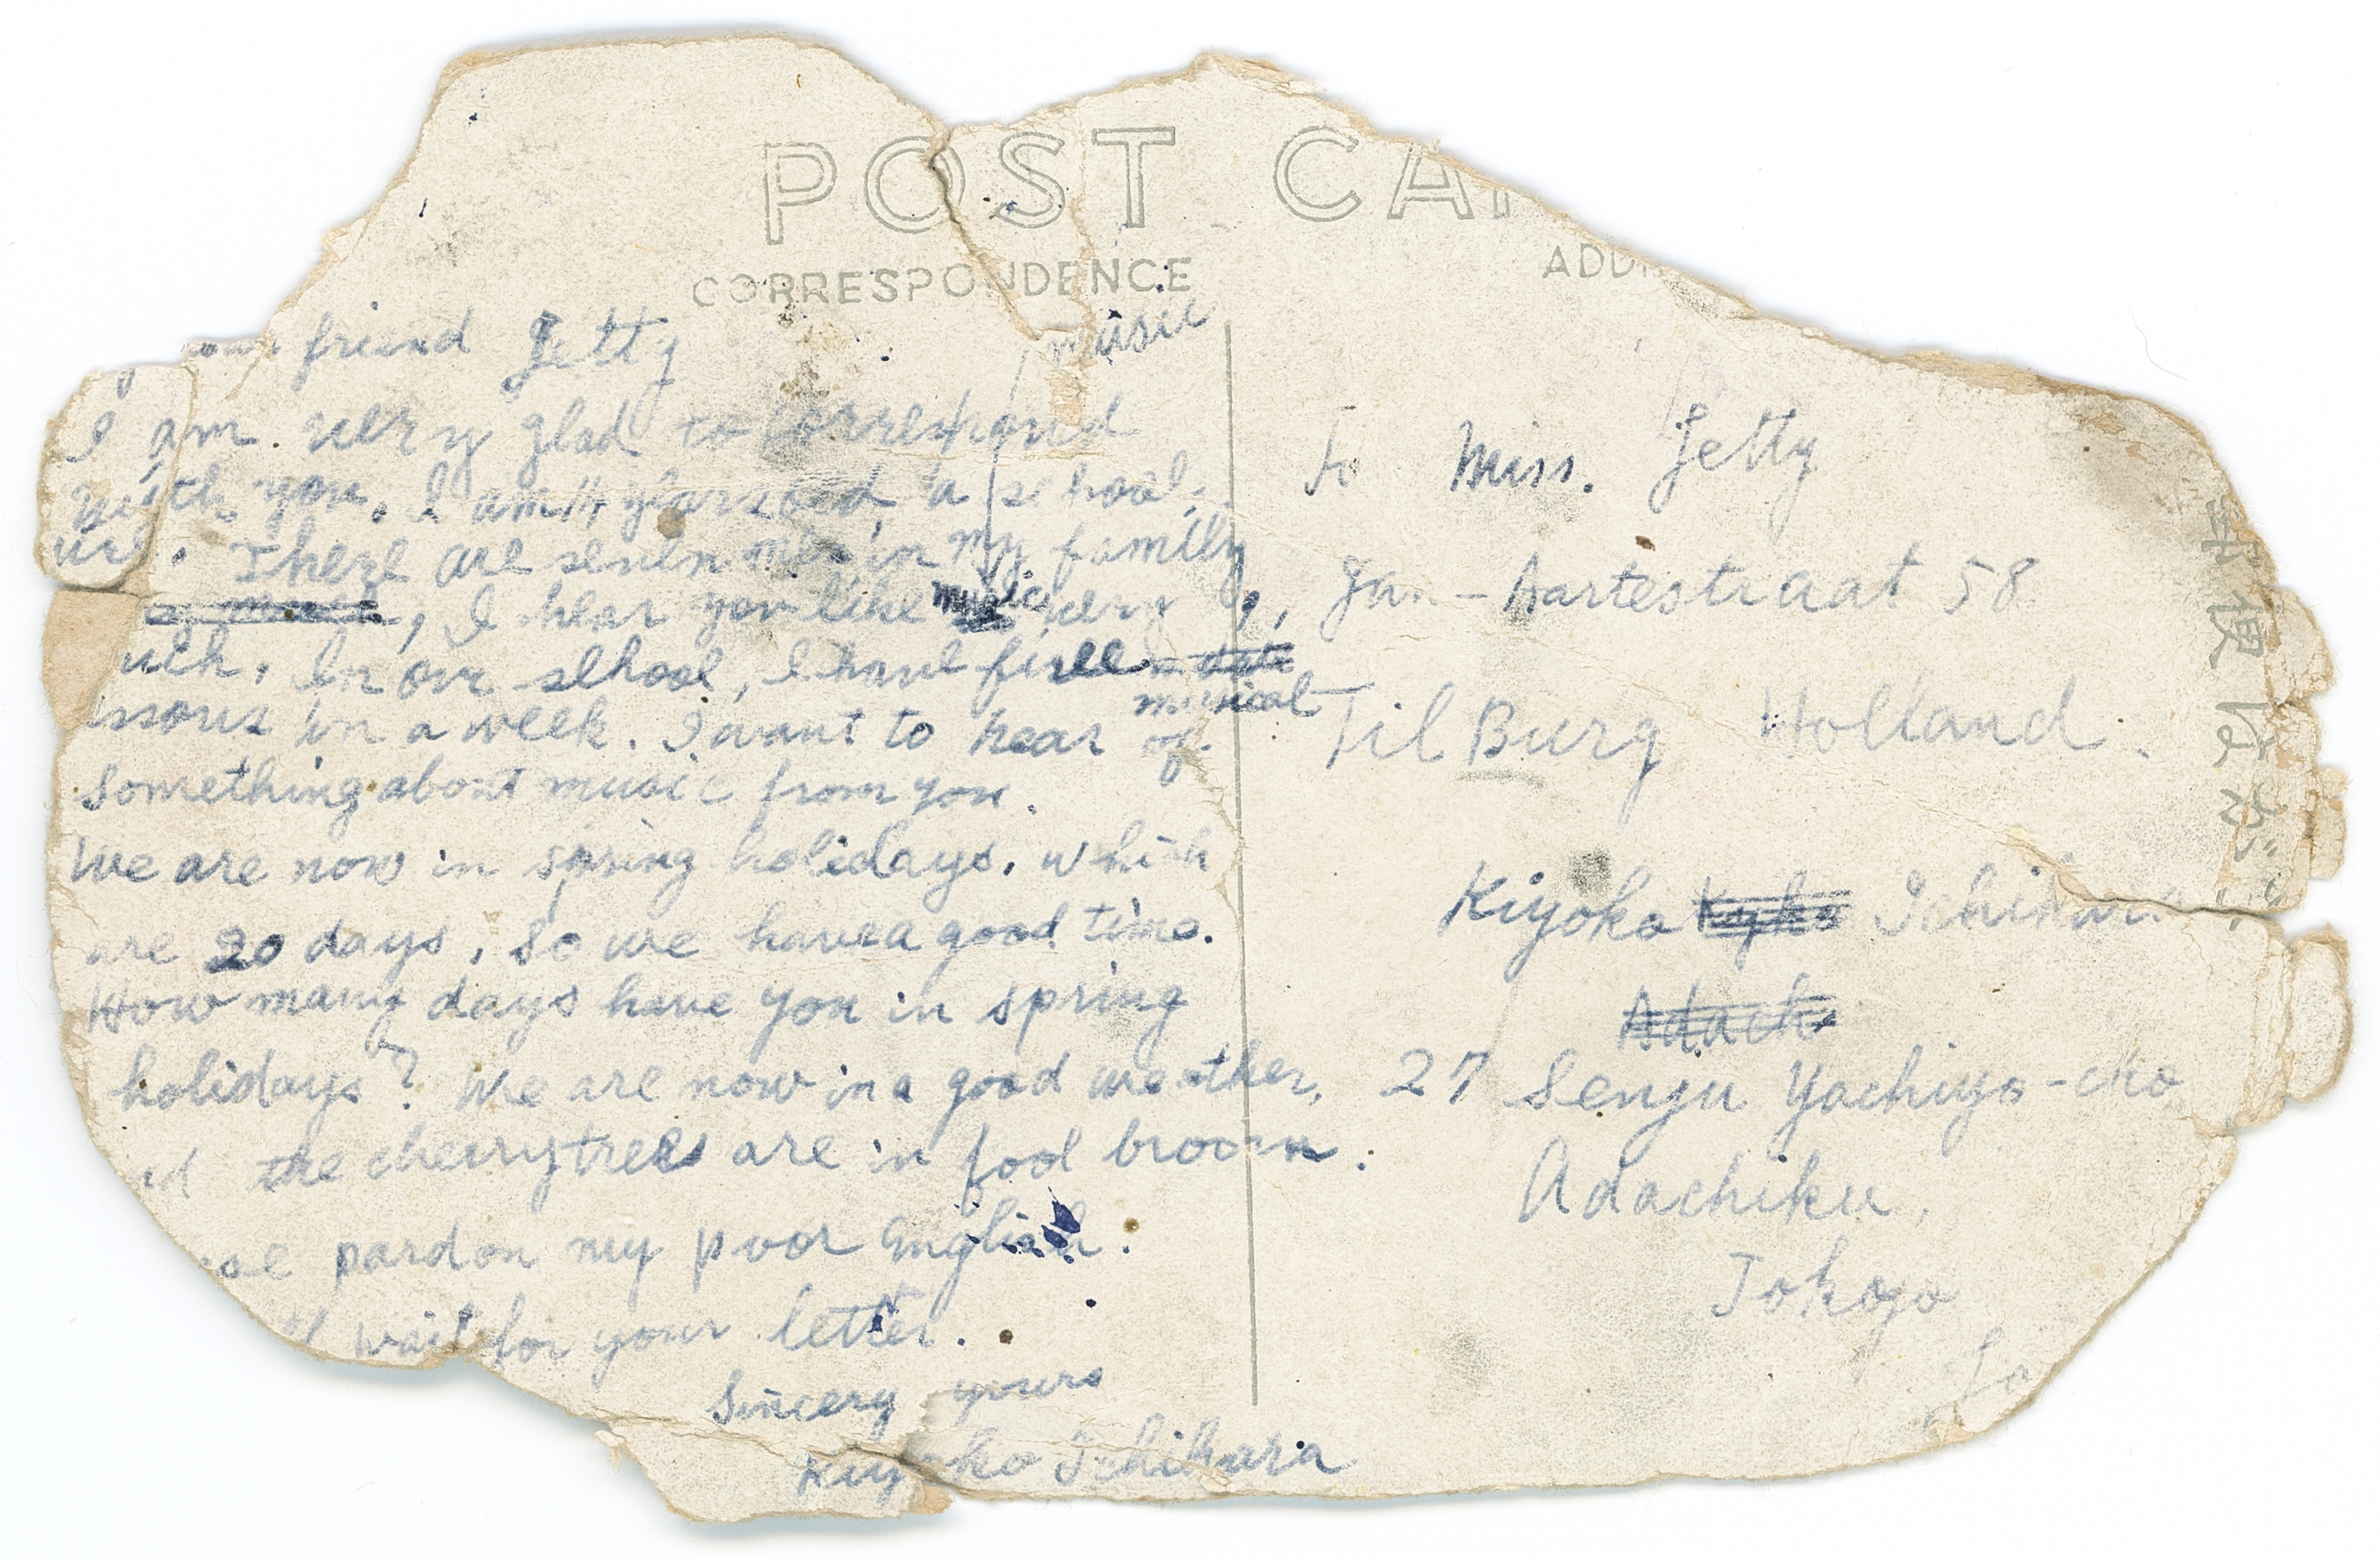 POST CA
CORRESPONDENCE
friend Jetty
music
I am very glad to correspond
with you. I am years old, a school
There are seven men in my family
, I hear you like music very
uch, In our school, I have five
musical
issons in a week. I want to hear of
something about music from you.
We are now in spring holidays. which
are 20 days, So we have a good time.
How many days have you in spring
holidays? We are now in a good weather,
d the cherrytrees are in fool broom.
se pardon my poor English.
wait for your letter.
Sincery yours
Kiyoko Ichihara
ADD
To Miss. Jetty
Jan-Aartestraat 58
TilBurg Holland.
Kiyoko Kyko Ichihara
Adach
27 Senju Yachiyo-cho
Adachiku,
Tokyo
Ja
郵便はがき